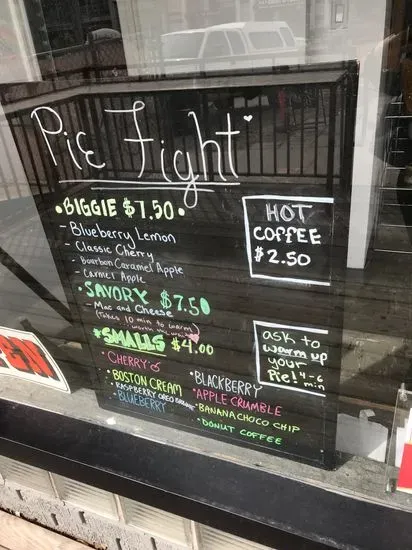 Pie Fight
• BIGGIE $7.50 •
- Blueberry Lemon
- Classic Cherry
- Bourbon Caramel Apple
- Carmel Apple
• SAVORY $7.50
- Mac and Cheese
(takes 10 min to warm,
worth the
HOT
COFFEE
$2.50
SMALLS $4.00
• CHERRY
• BOSTON CREAM
• RASPBERRY OREO
• BLUEBERRY
• BLACKBERRY
• APPLE CRUMBLE
• BANANA CHOCO CHIP
• DONUT COFFEE
ask to
warm up
your
Pie! 4-6
min
EN